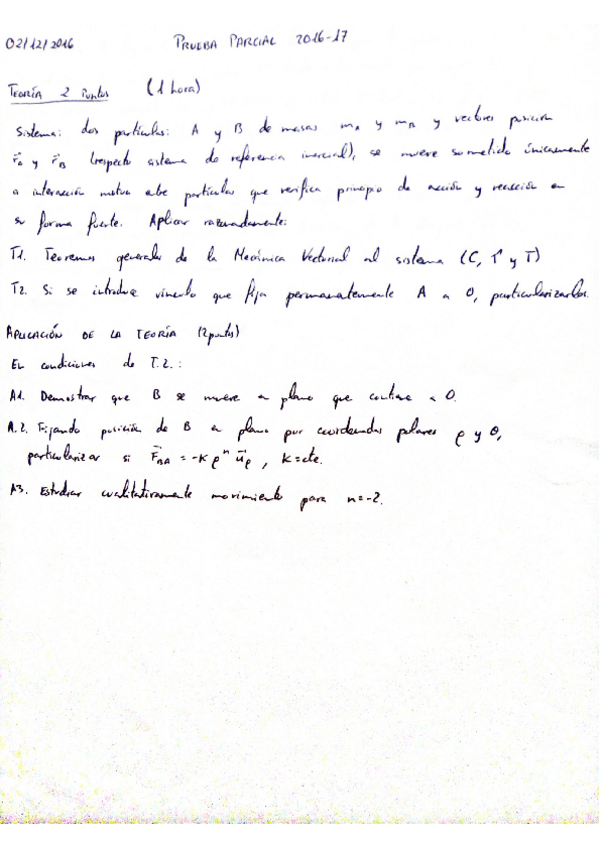 02/12/2016 PRUEBA PARCIAL 2016-17
TEORÍA 2 puntos (1 hora)
Sistema: dos partículas: A y B de masas mA y mB y vectores posición
r⃗A y r⃗B (respecto sistema de referencia inercial), se mueve sometido únicamente
a interacción mutua entre partículas que verifica principio de acción y reacción en
su forma fuerte. Aplicar razonadamente:
T1. Teoremas generales de la Mecánica Vectorial al sistema (C, Γ y T)
T2. Si se introduce vínculo que fija permanentemente A a O, particularizarlos.
APLICACIÓN DE LA TEORÍA (2 puntos)
En condiciones de T.2.:
A1. Demostrar que B se mueve en plano que contiene a O.
A.2. Fijando posición de B en plano por coordenadas polares ρ y θ,
particularizar si F⃗BA = -K ρⁿ u⃗ρ, K=cte.
A3. Estudiar cualitativamente movimiento para n=-2.